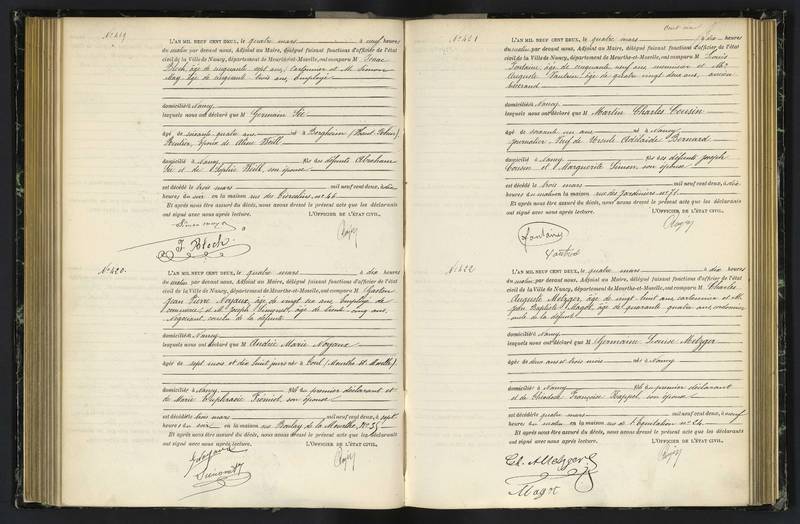 N° 419
L'AN MIL NEUF CENT DEUX, le quatre mars à neuf heures
du matin par devant nous, Adjoint au Maire, délégué faisant fonctions d'officier de l'état
civil de la Ville de Nancy, département de Meurthe-et-Moselle, ont comparu M Isaac
Bloch, âgé de cinquante sept ans, cartonnier et M. Simon
May âgé de cinquante trois ans, employé
domiciliés à Nancy
lesquels nous ont déclaré que M Germain Sée
âgé de soixante quatre ans né à Bergheim (Haut Rhin),
Rentier, époux de Weill
domicilié à Nancy fils des défunts Abraham
Sée et de Sophie Weill, son épouse
est décédé le trois mars mil neuf cent deux, à dix
heures du soir en la maison rue des n° 44
Et après nous être assuré du décès, nous avons dressé le présent acte que les déclarants
ont signé avec nous après lecture. L'OFFICIER DE L'ÉTAT CIVIL,
Simon may
J. Bloch
N° 420
L'AN MIL NEUF CENT DEUX, le quatre mars à dix heures
du matin par devant nous, Adjoint au Maire, délégué faisant fonctions d'officier de l'état
civil de la Ville de Nancy, département de Meurthe-et-Moselle, ont comparu M Gaston
Jean Pierre Noyaux, âgé de vingt six ans, Employé de
commerce et M. Joseph âgé de trente cinq ans,
Négociant, cousin de la défunte
domiciliés à Nancy
lesquels nous ont déclaré que M Andrée Marie Noyaux
âgée de sept mois et dix huit jours née à Toul (Meurthe et Moselle).
domiciliée à Nancy fille du premier déclarant et
de Marie Euphrasie Frémiot, son épouse
est décédée le trois mars mil neuf cent deux, à sept
heures du soir en la maison rue Boulay de la Meurthe, N° 35
Et après nous être assuré du décès, nous avons dressé le présent acte que les déclarants
ont signé avec nous après lecture. L'OFFICIER DE L'ÉTAT CIVIL,
N° 421
L'AN MIL NEUF CENT DEUX, le quatre mars à dix heures
du matin par devant nous, Adjoint au Maire, délégué faisant fonctions d'officier de l'état
civil de la Ville de Nancy, département de Meurthe-et-Moselle, ont comparu M Louis
Fontaine, âgé de cinquante neuf ans, menuisier et M.
Auguste Vautrin, âgé de quatre vingt deux ans, ancien
domiciliés à Nancy
lesquels nous ont déclaré que M Martin Charles Cousin
âgé de soixante un ans né à Nancy
journalier Veuf de Ursule Adélaïde Bernard
domicilié à Nancy fils des défunts Joseph
Cousin et Marguerite Simon, son épouse
est décédé le trois mars mil neuf cent deux, à dix
heures du matin en la maison rue des Jardiniers n° 71
Et après nous être assuré du décès, nous avons dressé le présent acte que les déclarants
ont signé avec nous après lecture. L'OFFICIER DE L'ÉTAT CIVIL,
Fontaine
Vautrin
N° 422
L'AN MIL NEUF CENT DEUX, le quatre mars à dix heures
du matin par devant nous, Adjoint au Maire, délégué faisant fonctions d'officier de l'état
civil de la Ville de Nancy, département de Meurthe-et-Moselle, ont comparu M Charles
Auguste Metzger, âgé de vingt huit ans cordonnier et M.
Jean Baptiste Magot, âgé de quarante quatre ans cordonnier
de la défunte
domiciliés à Nancy
lesquels nous ont déclaré que M Germaine Louise Metzger
âgée de deux ans et trois mois née à Nancy
domiciliée à Nancy fille du premier déclarant
et de Françoise Kappel, son épouse
est décédée le quatre mars mil neuf cent deux, à neuf
heures du matin en la maison rue de l'Equitation n° 24
Et après nous être assuré du décès, nous avons dressé le présent acte que les déclarants
ont signé avec nous après lecture. L'OFFICIER DE L'ÉTAT CIVIL,
Ch. A. Metzger
Magot